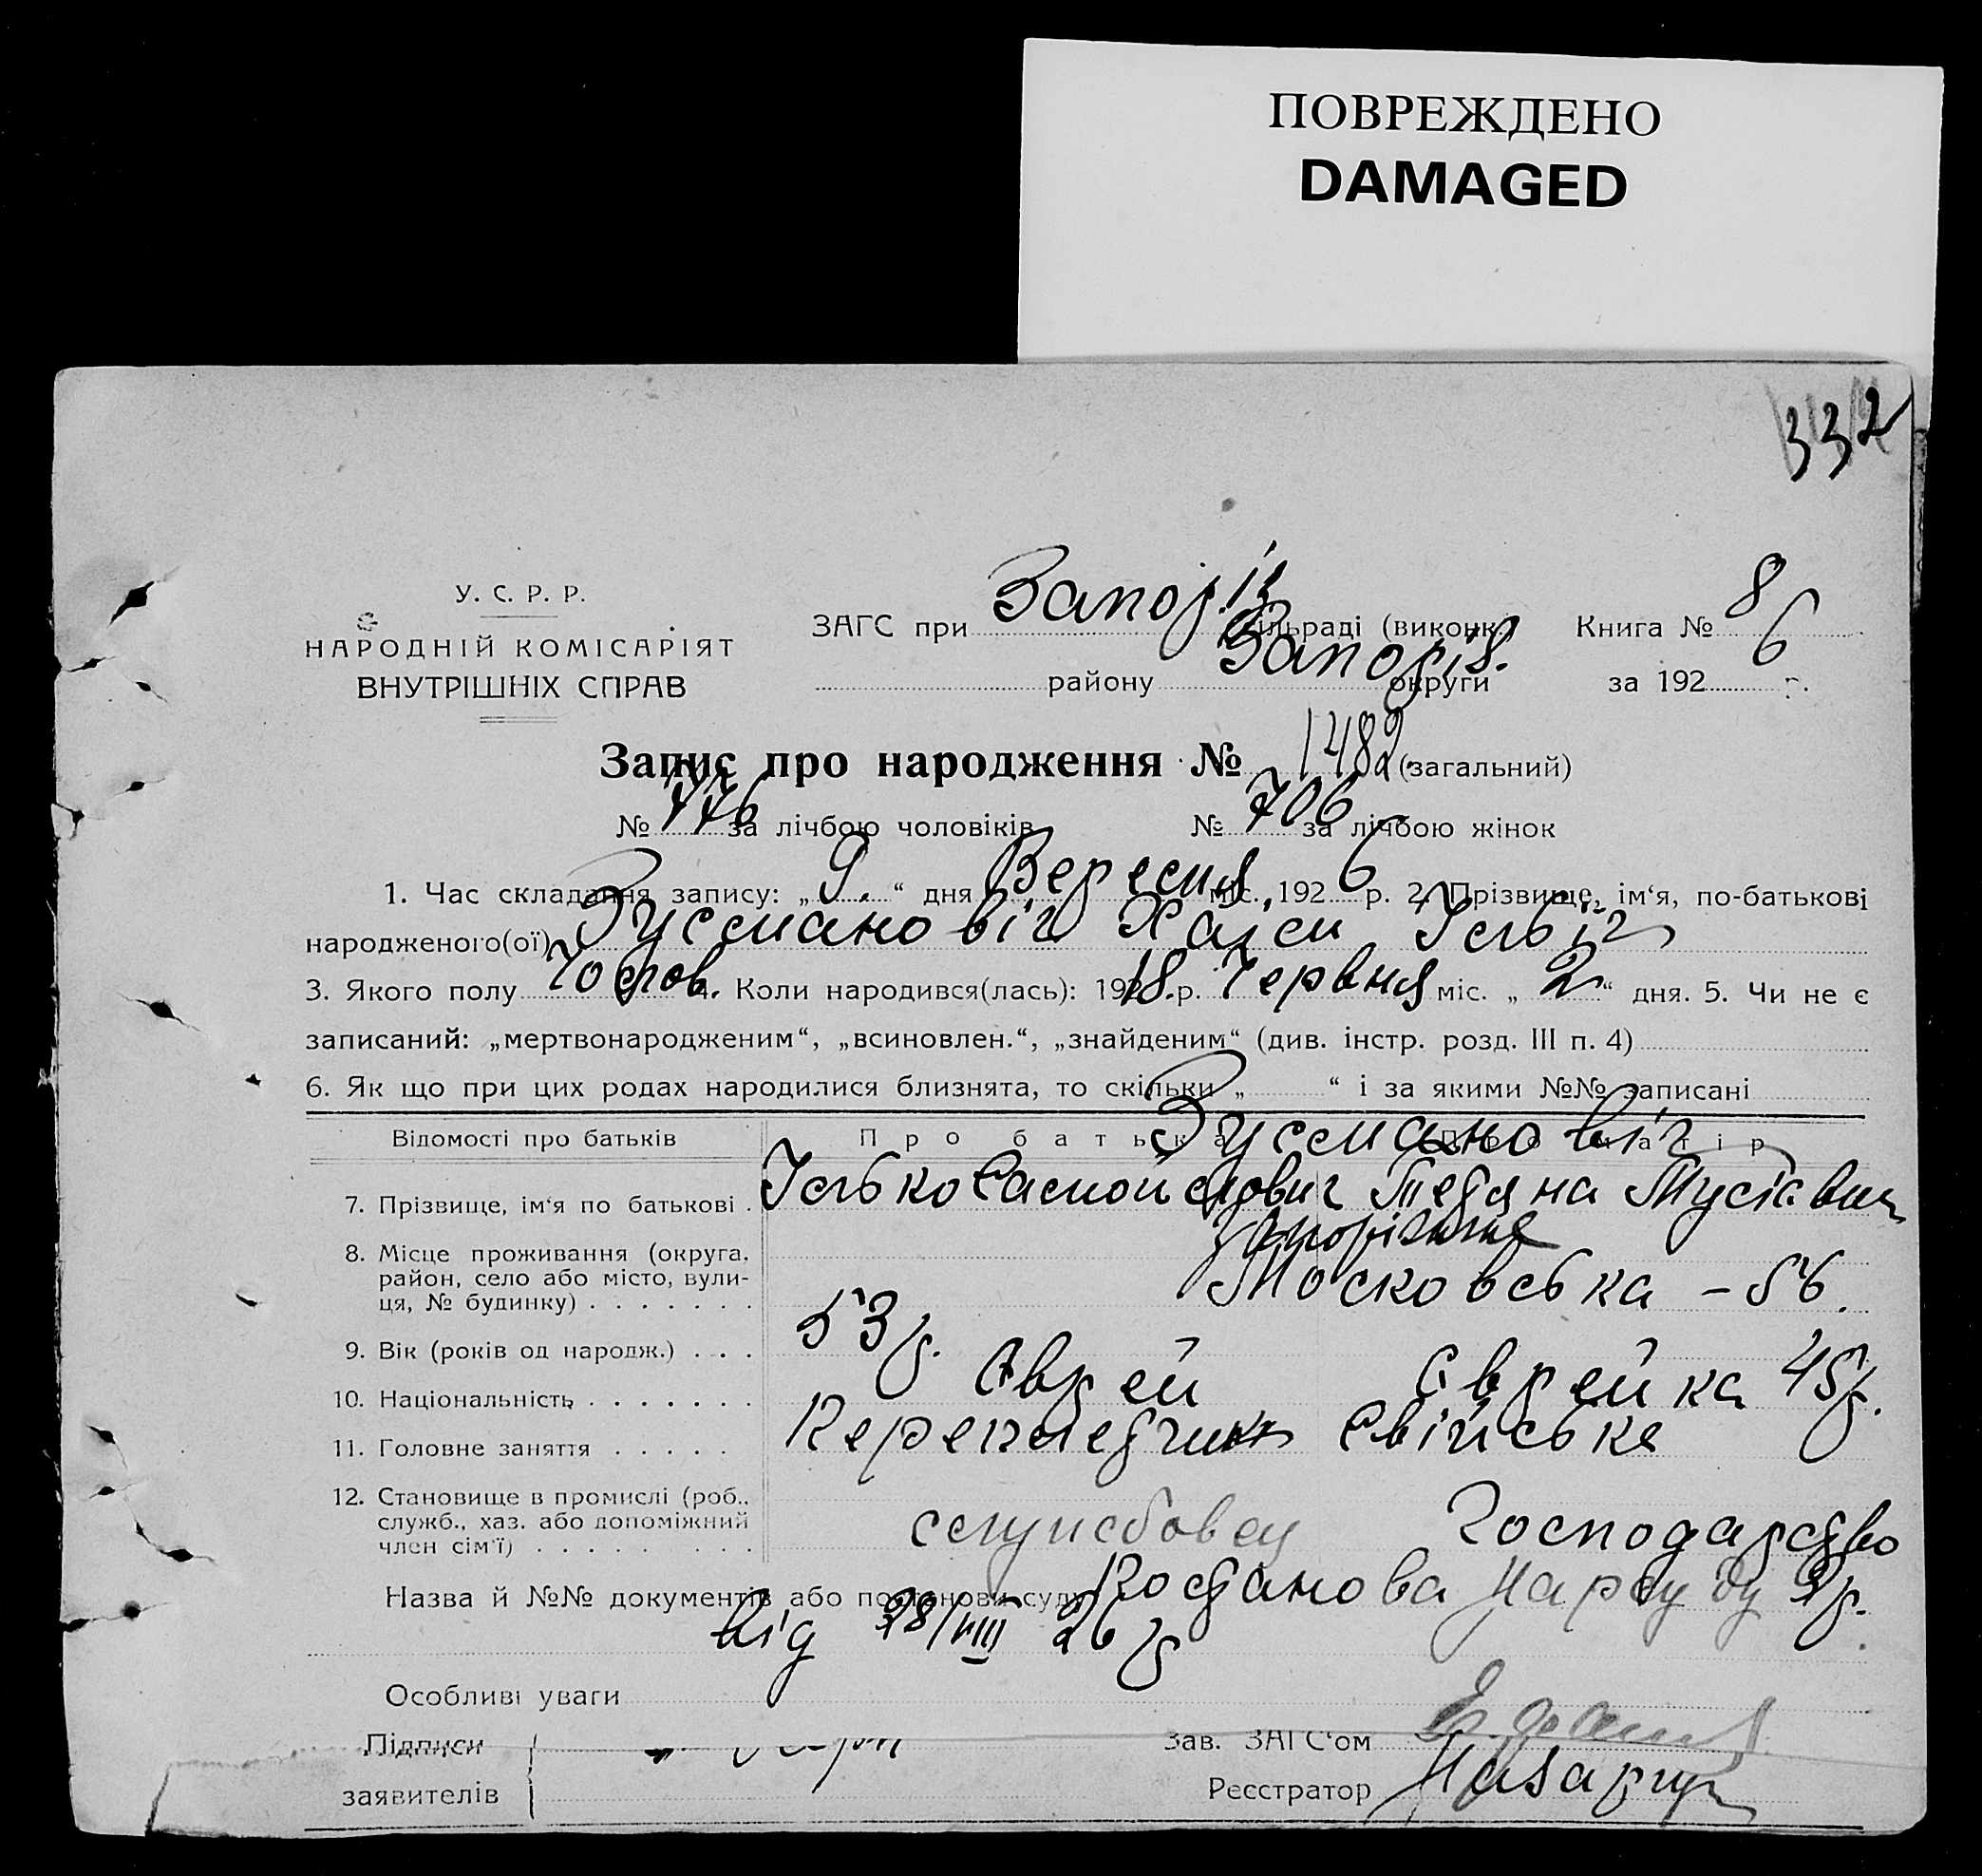 ПОВРЕЖДЕНО
DAMAGED
332
У. С. Р. Р.
НАРОДНІЙ КОМІСАРІЯТ
ВНУТРІШНІХ СПРАВ
ЗАГС при Запоріз сільраді (виконк) Книга № 8
району Запоріз. округи за 1926 р.
Запис про народження № 1482 (загальний)
№ 776 за лічбою чоловіків № 706 за лічбою жінок
1. Час складання запису: „9.“ дня Вересня міс., 1926 р. 2. Прізвище, ім‘я, по-батькові
народженого(ої) Зусманович
3. Якого полу 4. Коли народився(лась): 1918 р. Червня міс. „2“ дня. 5. Чи не є
записаний: „мертвонародженим“, „всиновлен.“, „знайденим“ (див. інстр. розд. III п. 4)
6. Як що при цих родах народилися близнята, то скільки „ “ і за якими №№ записані
Відомості про батьків Про батька Про матір
Зусманович
7. Прізвище, ім‘я по батькові
8. Місце проживання (округа, район, село або місто, вулиця, № будинку) Запоріжжя
Московська – 56.
9. Вік (років од народж.) 53 р. 45 р.
10. Національність Єврей Єврейка
11. Головне заняття Свійське
12. Становище в промислі (роб., служб., хаз. або допоміжний член сім‘ї) службовец Господарство
Назва й №№ документів або постанови суду Постанова Нарсуду 2 р.
від 28/VIII 26 р
Особливі уваги
Підписи
заявителів
Зав. ЗАГС‘ом
Реєстратор